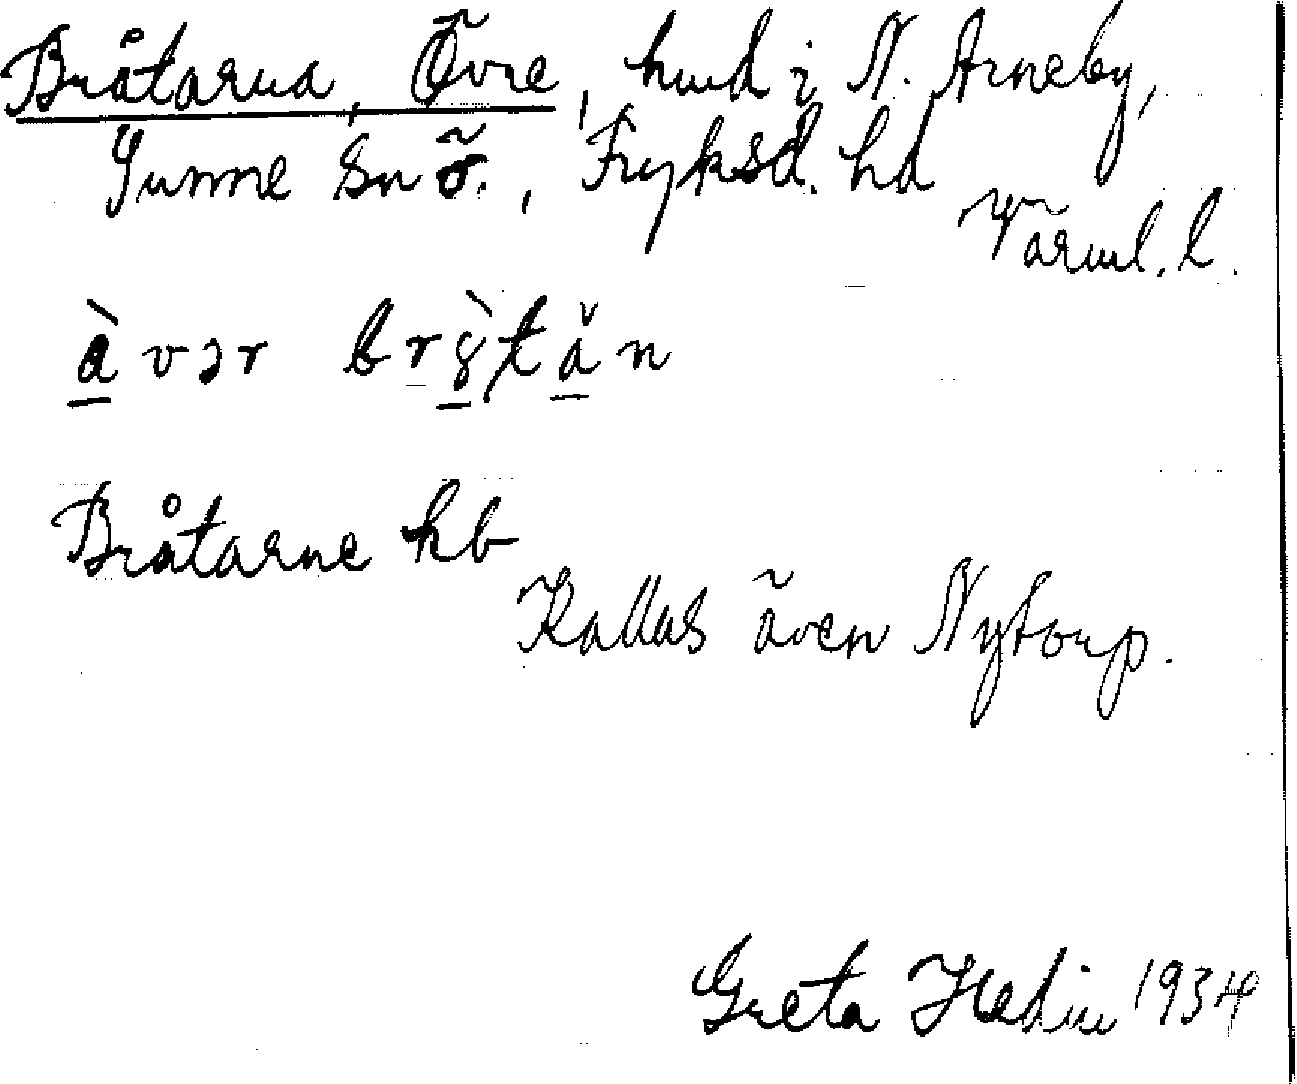 Bråtarna, Övre, hmd i N. Arneby,
Sunne sn ö., Fryksd. hd
Värml. l.
à vər br϶̀tǎn
Bråtarne kb
Kallas även Nytorp.
Greta Hedin 1934